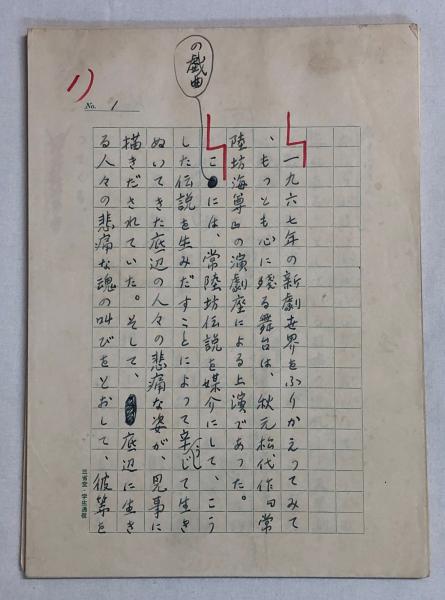 1)
No. 1
一九六七年の新劇世界をふりかえってみて
、もっとも心に残る舞台は、秋元松代作『常
陸坊海尊』の演劇座による上演であった。
の戯曲
こには、常陸坊伝説を媒介にして、こう
した伝説を生みだすことによって辛うじて生き
ぬいてきた底辺の人々の悲痛な姿が、見事に
描きだされていた。そして、底辺に生き
る人々の悲痛な魂の叫びをとおして、彼等を